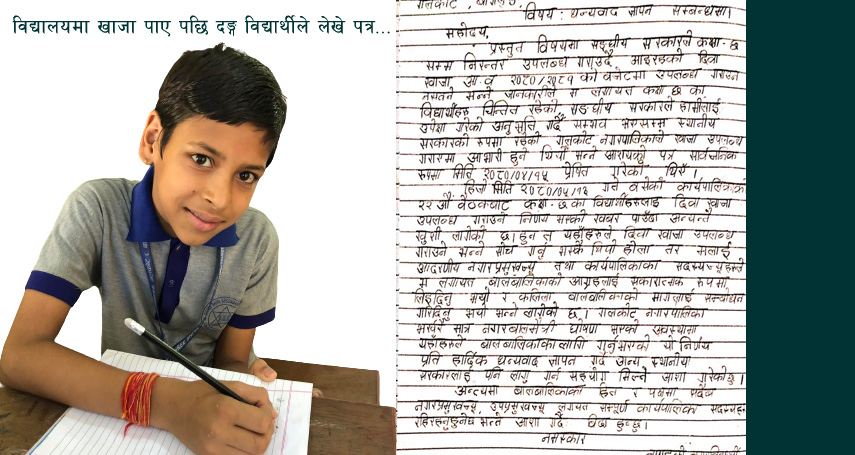 विद्यालयमा खाजा पाए पछि दङ्ग विद्यार्थीले लेखे पत्र...
विषय : धन्यवाद ज्ञापन सम्बन्धमा।
महोदय,
प्रस्तुत विषयमा सङ्घीय सरकारले कक्षा-६
सम्म निरन्तर उपलब्ध गराउँदै आइरहेको दिवा
खाजा आ.व २०८०/२०८१ को बजेटमा उपलब्ध गराउन
नसक्ने भन्ने जानकारीले म लगायत कक्षा ६ का
विद्यार्थीहरू चिन्तित रहेको, सङ्घीय सरकारले हामीलाई
उपेक्षा गरेको अनुभूति गर्दै सम्भव भएसम्म स्थानीय
सरकारको रूपमा रहेको गलकोट नगरपालिकाले खाजा उपलब्ध
गराएमा आभारी हुने थियौँ भन्ने आशयको पत्र सार्वजनिक
रूपमा मिति २०८०/०४/१५ प्रेषित गरेको थिएँ।
हिजो मिति २०८०/०५/१३ गते बसेको कार्यपालिकाको
२२ औँ बैठकबाट कक्षा-६ का विद्यार्थीहरूलाई दिवा खाजा
उपलब्ध गराउने निर्णय भएको खबर पाउँदा अत्यन्तै
खुशी लागेको छ। हुन त यहाँहरूले दिवा खाजा उपलब्ध
गराउने भन्ने सोच गर्नु भएकै थियो होला तर मलाई
आदरणीय नगरप्रमुखज्यू तथा कार्यपालिकाका सदस्यज्यूहरूले
म लगायत बालबालिकाको आग्रहलाई सकारात्मक रूपमा
लिइदिनु भयो र कलिला बालबालिकाको मागलाई सम्बोधन
गरिदिनु भयो भन्ने लागेको छ। गलकोट नगरपालिका
भर्खर मात्र नगरबालमैत्री घोषणा भएको अवस्थामा
यहाँहरूले बालबालिकाका लागि गर्नुभएको यो निर्णय
प्रति हार्दिक धन्यवाद ज्ञापन गर्दै अन्य स्थानीय
सरकारलाई पनि लागु गर्न सहयोग मिल्ने आशा गरेकोछु।
अन्त्यमा बालबालिकाका हित र पक्षमा सदैव
नगरप्रमुखज्यू, उपप्रमुखज्यू लगायत सम्पूर्ण कार्यपालिका सदस्यहरू
रहिरहनुहुनेछ भन्ने आशा गर्दै बिदा हुन्छु।
नमस्कार